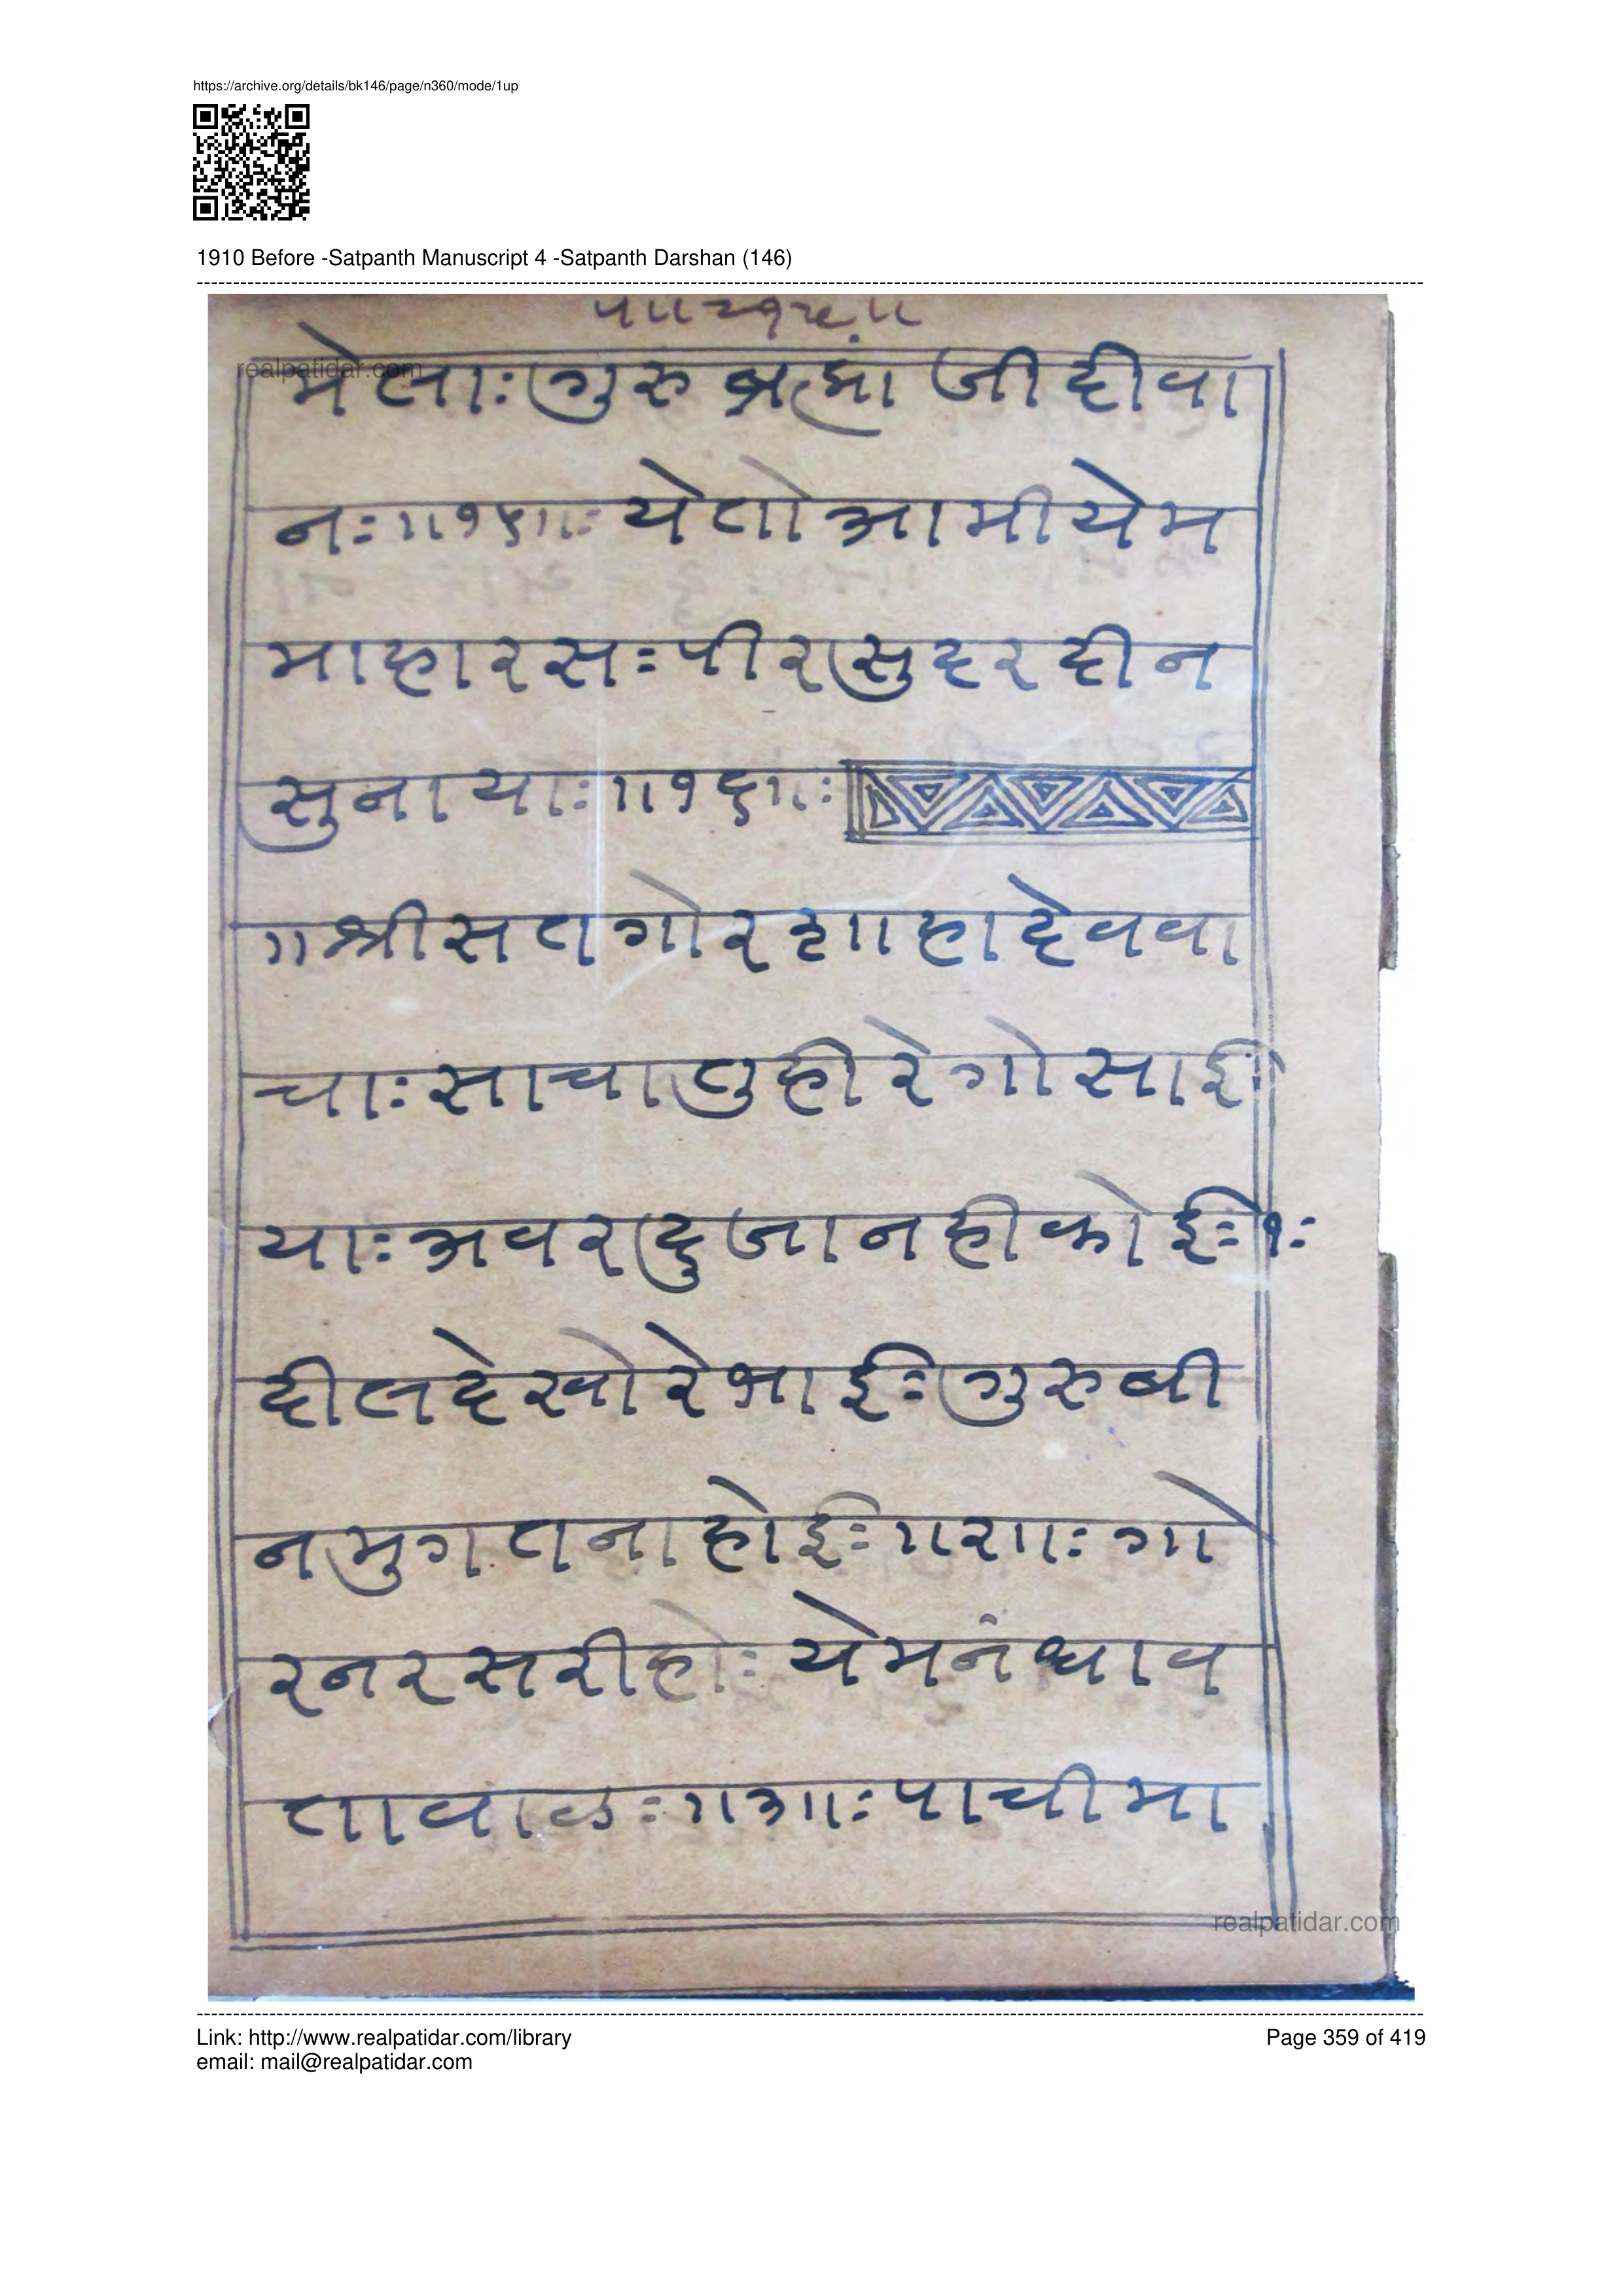 https://archive.org/details/bk146/page/n360/mode/1up
1910 Before -Satpanth Manuscript 4 -Satpanth Darshan (146)
realpatidar.com
मेलाः गुरु ब्रह्मां जी दीवा
नः ॥१५॥ः येतो आमी येम
माहारसः पीर सुदरदीन
सुनायाः ॥१६॥ः
॥श्री सतगोर शाहादेव वा
चाः साचा तुही रे गोसाईः
याः अवर दुजा नही कोईः १ः
दील देखो रे भाईः गुरु बी
न मुगत ना होईः ॥२॥ः गो
र नर सरीहोः येमनं ध्याव
तावाळः ॥३॥ः पाची मा
realpatidar.com
Link: http://www.realpatidar.com/library
Page 359 of 419
email: mail@realpatidar.com